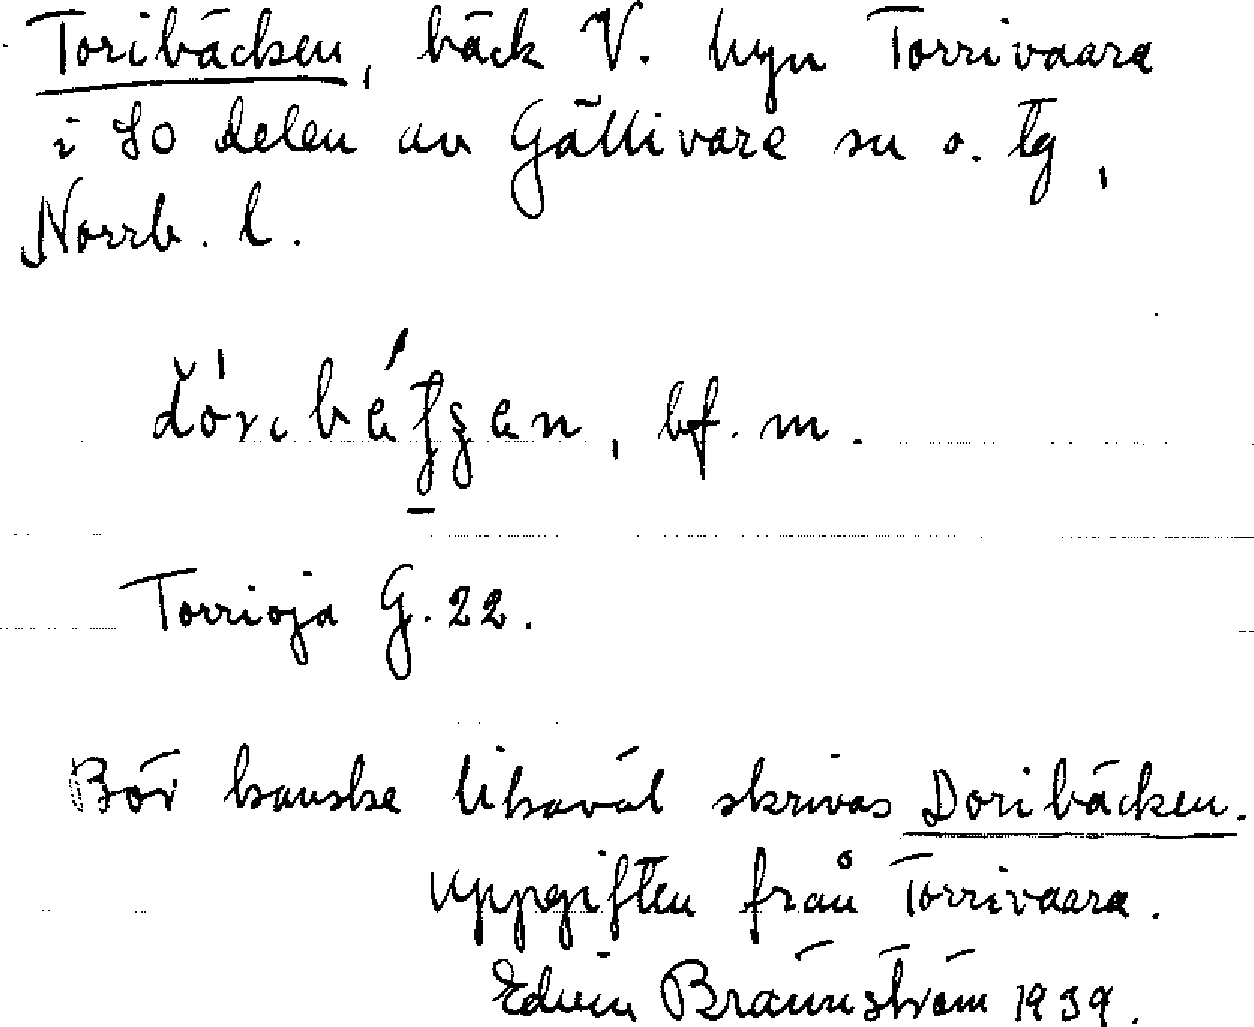 Toribäcken, bäck V. byn Torrivaara
i SO delen av Gällivare sn o. tg,
Norrb. l.
bf. m.
Torrioja G. 22.
Bör kanske likaväl skrivas Doribäcken.
Uppgiften från Torrivaara.
Edvin Brännström 1939.